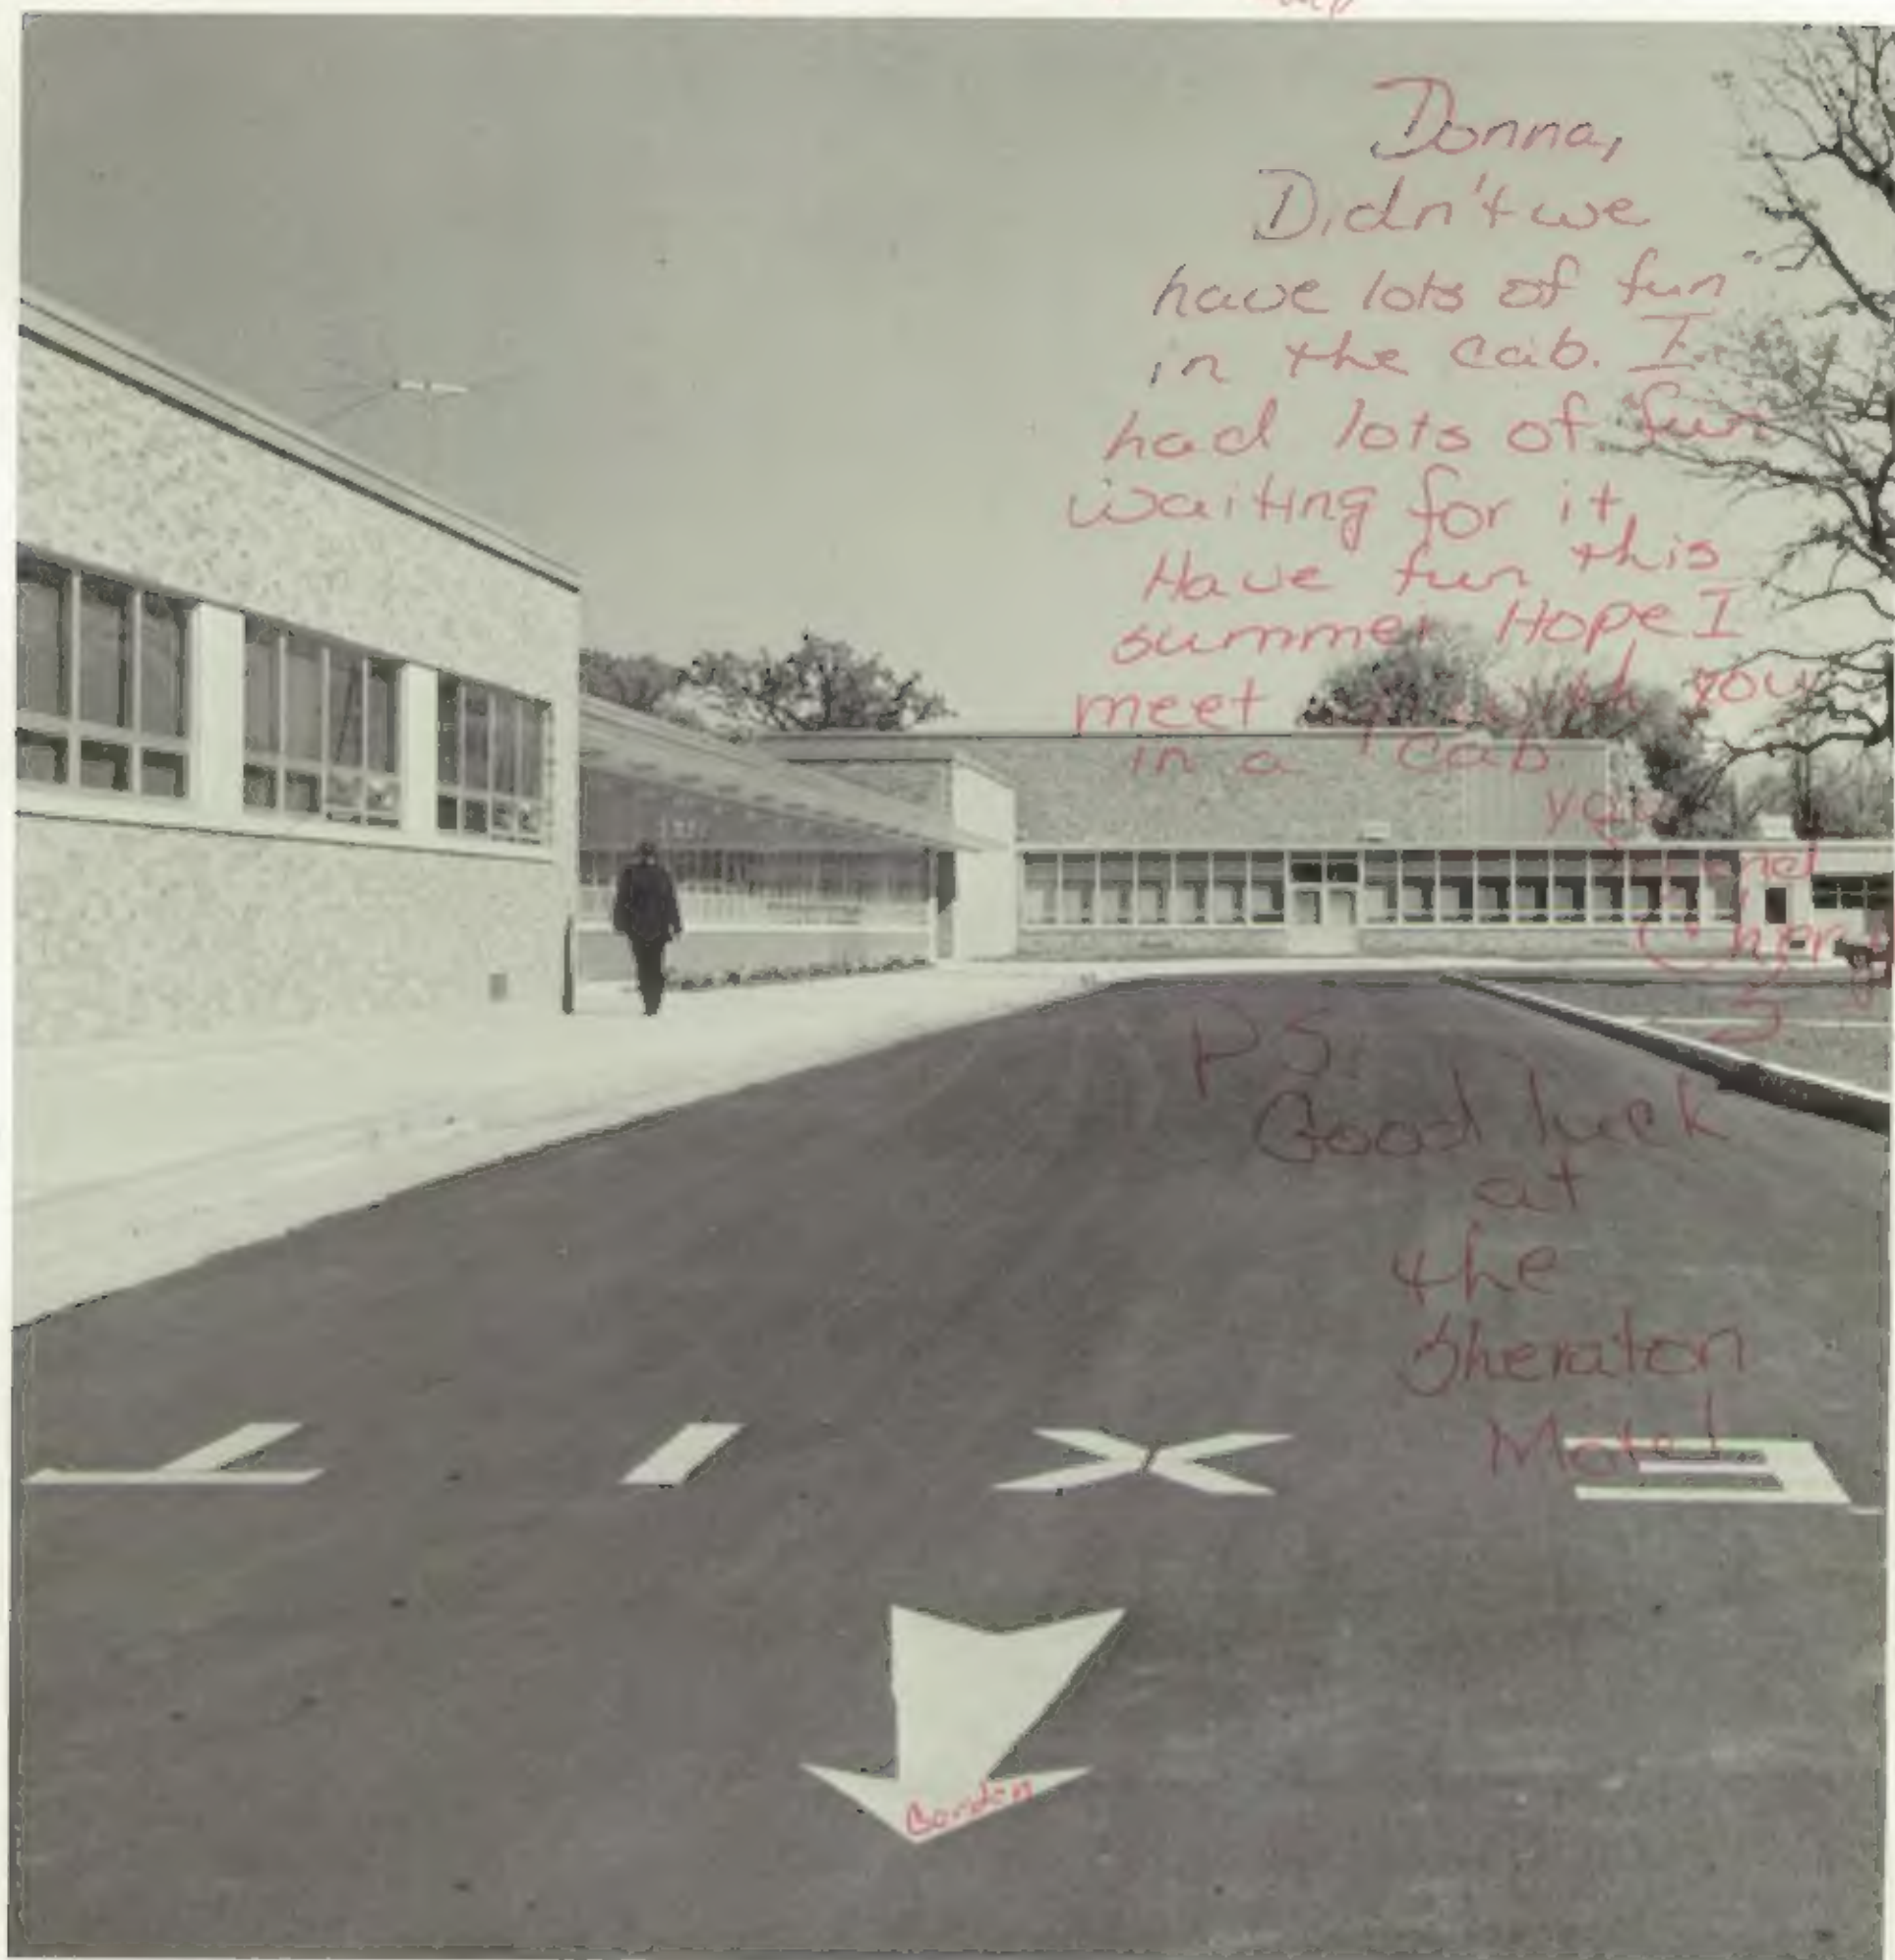 Donna,
Didn't we
have lots of fun
in the cab. I
had lots of fun
waiting for it.
Have fun this
summer Hope I
meet up with you
in a cab
your
friend
Cheryl
S.
PS.
Good luck
at
the
Sheraton
Motel
EXIT